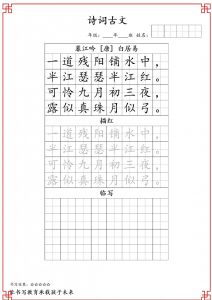 诗词古文
年级:___年___班 姓名:
暮江吟 [唐] 白居易
一道残阳铺水中，
半江瑟瑟半江红。
可怜九月初三夜，
露似真珠月似弓。
描红
一道残阳铺水中，
半江瑟瑟半江红。
可怜九月初三夜，
露似真珠月似弓。
临写
书写效果：☆☆☆☆☆
让书写教育承载孩子未来